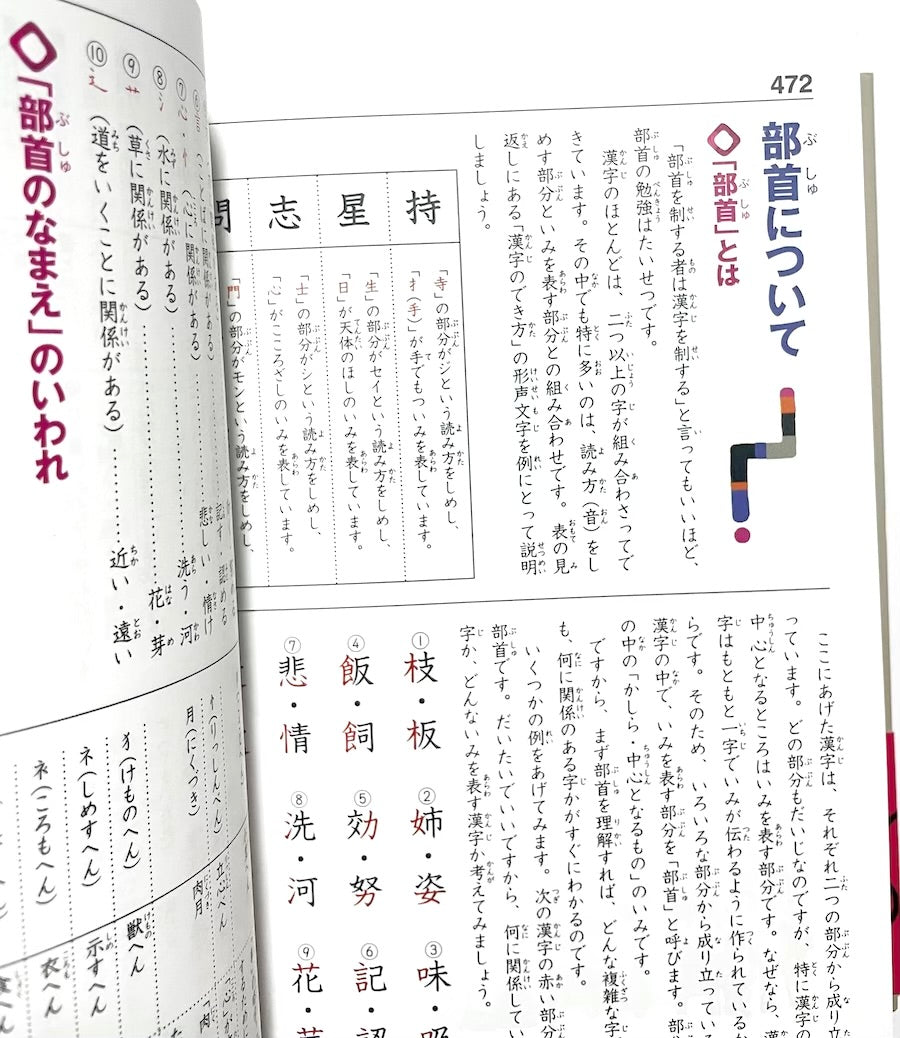 472
部首について
「部首」とは
「部首を制する者は漢字を制する」と言ってもいいほど、
部首の勉強はたいせつです。
漢字のほとんどは、二つ以上の字が組み合わさってで
きています。その中でも特に多いのは、読み方(音)をし
めす部分といみを表す部分との組み合わせです。表の見
返しにある「漢字のでき方」の形声文字を例にとって説明
しましょう。
持
「寺」の部分がジという読み方をしめし、
「扌(手)」が手でもついみを表しています。
星
「生」の部分がセイという読み方をしめし、
「日」が天体のほしのいみを表しています。
志
「士」の部分がシという読み方をしめし、
「心」がこころざしのいみを表しています。
問
「門」の部分がモンという読み方をしめし、
ここにあげた漢字は、それぞれ二つの部分から成り立
っています。どの部分もだいじなのですが、特に漢字の
中心となるところはいみを表す部分です。なぜなら、漢
字はもともと一字でいみが伝わるように作られているか
らです。そのため、いろいろな部分から成り立っている
漢字の中で、いみを表す部分を「部首」と呼びます。部
の中の「かしら・中心となるもの」のいみです。
ですから、まず部首を理解すれば、どんな複雑な字
も、何に関係のある字かがすぐにわかるのです。
いくつかの例をあげてみます。次の漢字の赤い部分
部首です。だいたいでいいですから、何に関係してい
字か、どんないみを表す漢字か考えてみましょう。
①枝・板
②姉・姿
③味・
④飯・飼
⑤効・努
⑥記・認
⑦悲・情
⑧洗・河
⑨花・
⑥言(ことばに関係がある)……記す・認める
⑦心・忄(心に関係がある)……悲しい・情け
⑧氵(水に関係がある)……洗う・河
⑨艹(草に関係がある)……花・芽
⑩辶(道をいくことに関係がある)……近い・遠い
「部首のなまえ」のいわれ
忄(りっしんべん)
立心べん
月(にくづき)
肉月
犭(けものへん)
獣へん
ネ(しめすへん)
示すへん
ネ(ころもへん)
衣へん